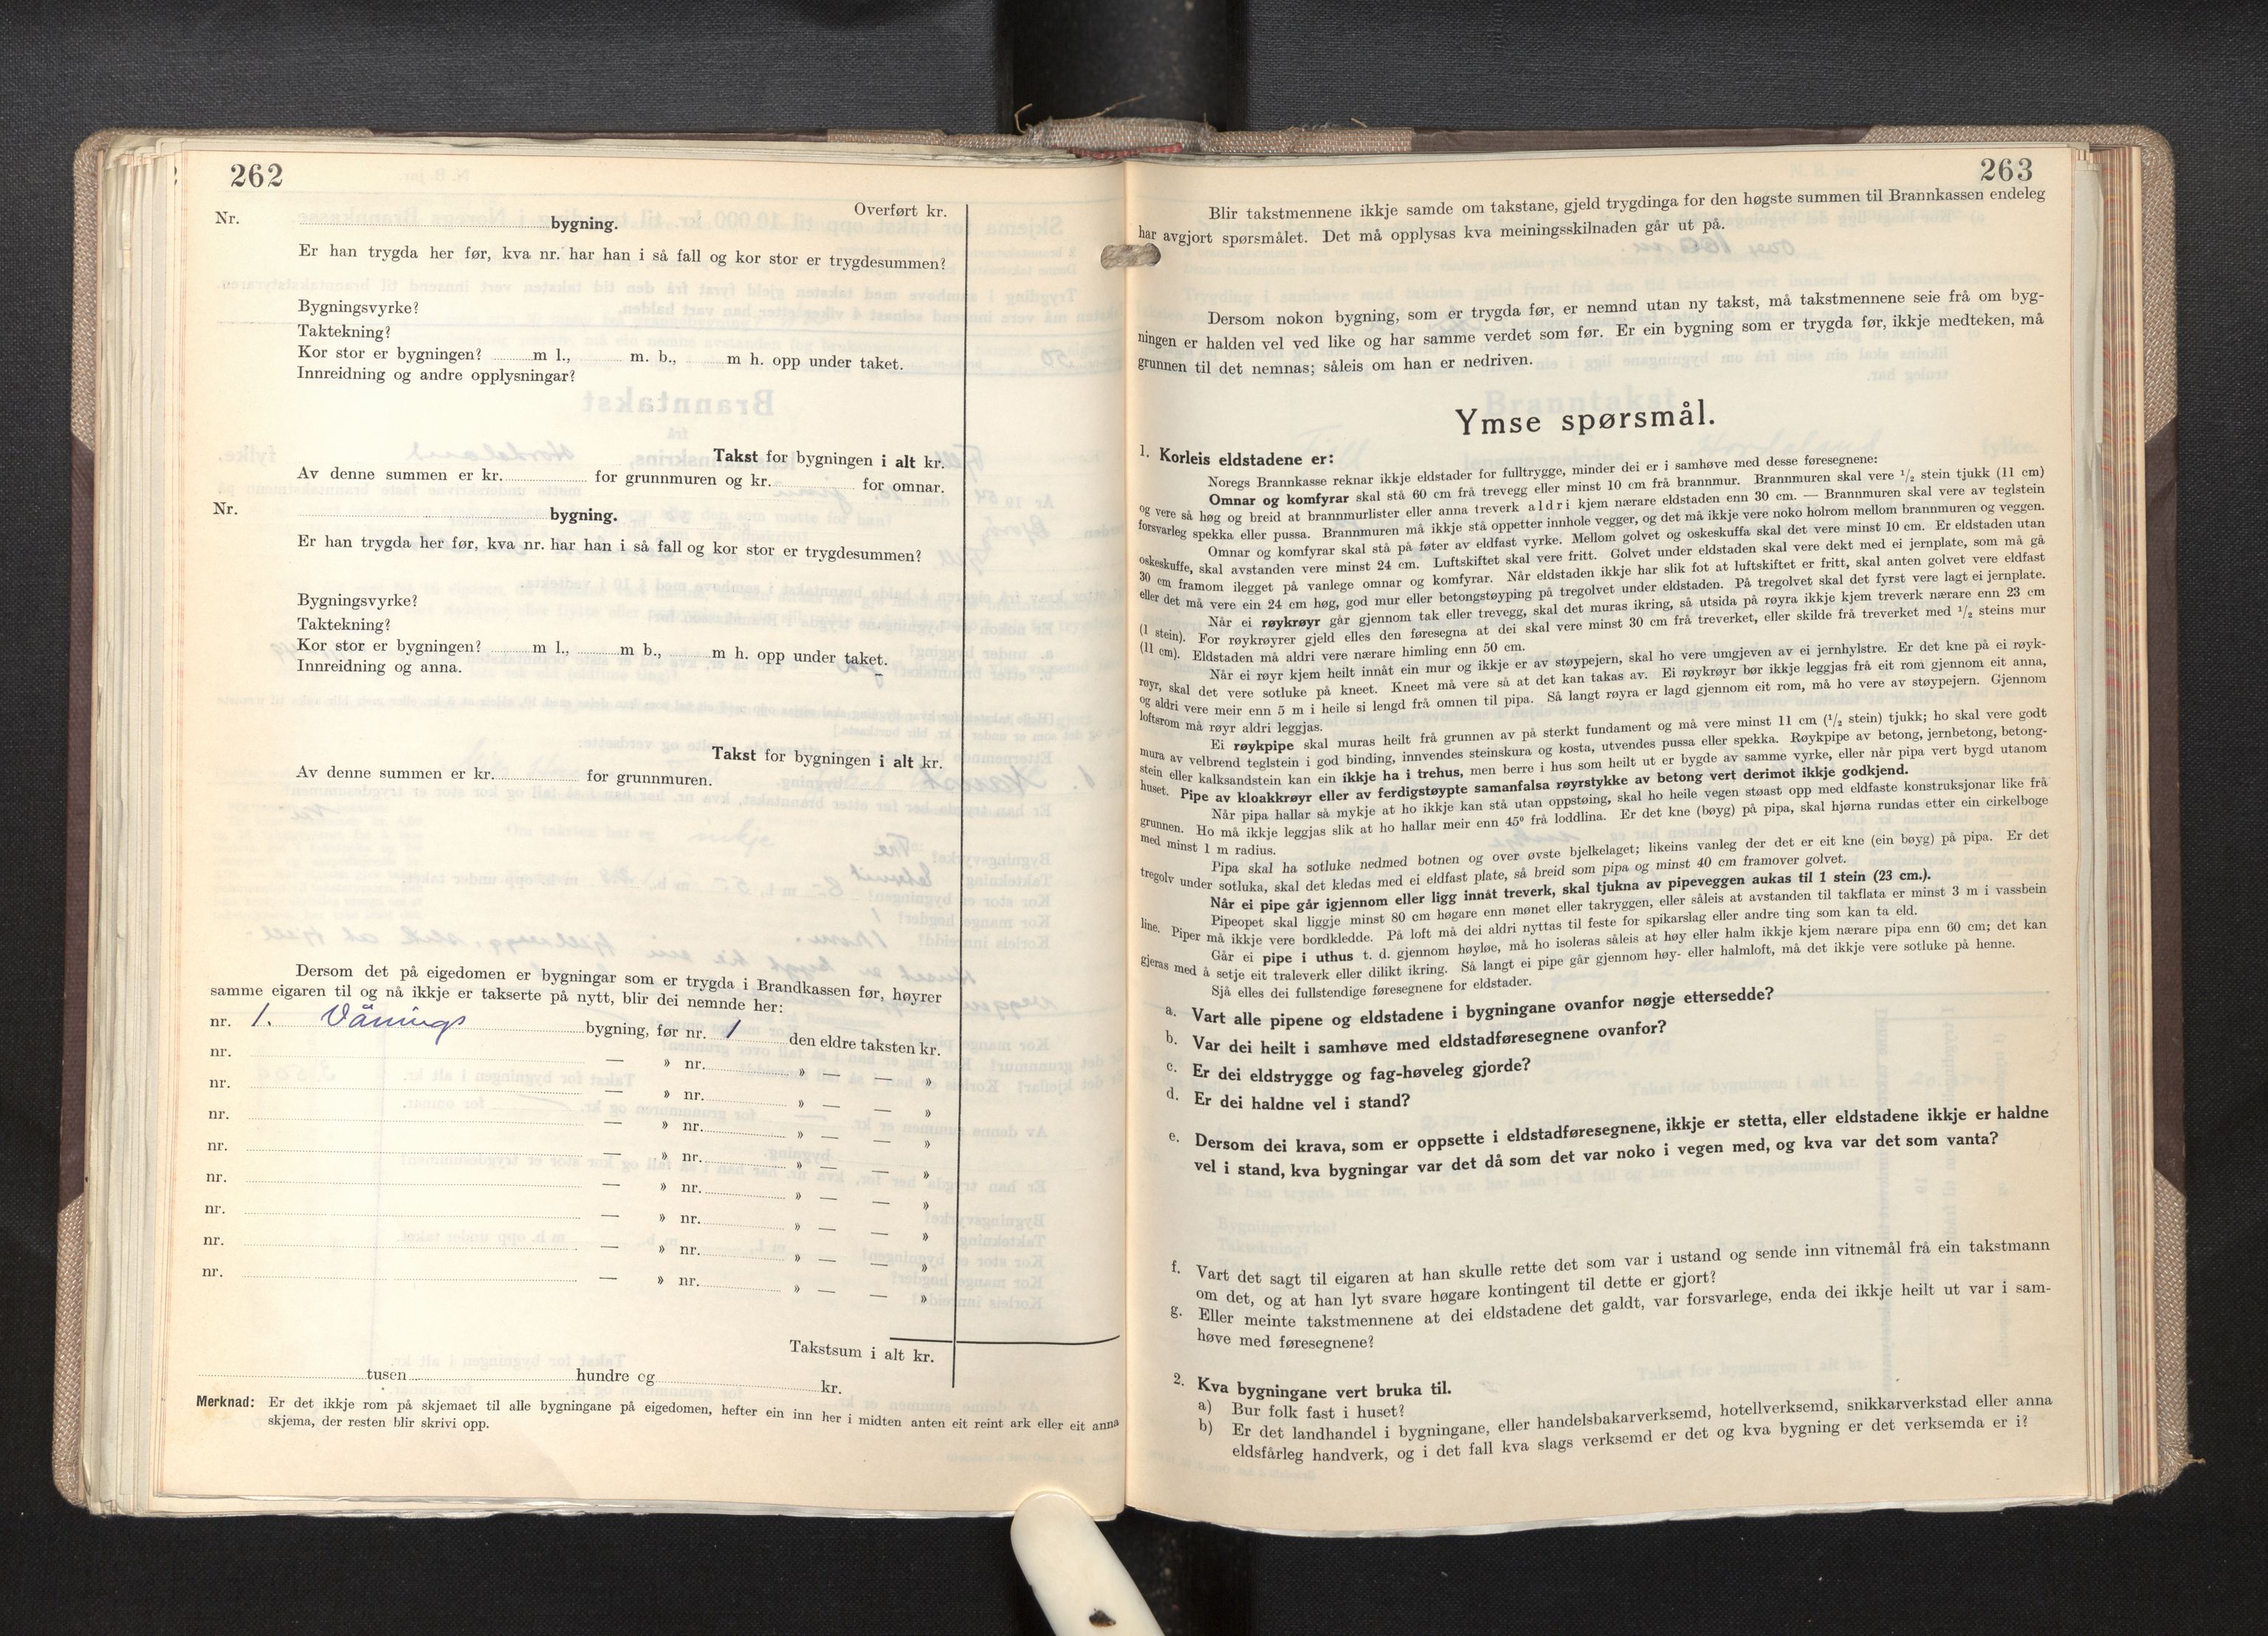 262
Overført kr.
Nr. bygning.
Er han trygda her før, kva nr. har han i så fall og kor stor er trygdesummen?
Bygningsvyrke?
Taktekning?
Kor stor er bygningen? m l., m. b., m h. opp under taket.
Innreidning og andre opplysningar?
Takst for bygningen i alt kr.
Av denne summen er kr. for grunnmuren og kr. for omnar.
Nr. bygning.
Er han trygda her før, kva nr. har han i så fall og kor stor er trygdesummen?
Bygningsvyrke?
Taktekning?
Kor stor er bygningen? m l., m b., m h. opp under taket.
Innreidning og anna.
Takst for bygningen i alt kr.
Av denne summen er kr. for grunnmuren.
Dersom det på eigedomen er bygningar som er trygda i Brandkassen før, høyrer
samme eigaren til og nå ikkje er takserte på nytt, blir dei nemnde her:
nr. 1. Vånings bygning, før nr. 1 den eldre taksten kr.
nr. — » nr. » — — »
nr. — » nr. » — — »
nr. — » nr. » — — »
nr. — » nr. » — — »
nr. — » nr. » — — »
nr. — » nr. » — — »
nr. — » nr. » — — »
nr. — » nr. » — — »
Takstsum i alt kr.
tusen hundre og kr.
Merknad: Er det ikkje rom på skjemaet til alle bygningane på eigedomen, hefter ein inn her i midten anten eit reint ark eller eit anna
skjema, der resten blir skrivi opp.
263
Blir takstmennene ikkje samde om takstane, gjeld trygdinga for den høgste summen til Brannkassen endeleg
har avgjort spørsmålet. Det må opplysas kva meiningsskilnaden går ut på.
Dersom nokon bygning, som er trygda før, er nemnd utan ny takst, må takstmennene seie frå om byg-
ningen er halden vel ved like og har samme verdet som før. Er ein bygning som er trygda før, ikkje medteken, må
grunnen til det nemnas; såleis om han er nedriven.
Ymse spørsmål.
1. Korleis eldstadene er:
Noregs Brannkasse reknar ikkje eldstader for fulltrygge, minder dei er i samhøve med desse føresegnene:
Omnar og komfyrar skal stå 60 cm frå trevegg eller minst 10 cm frå brannmur. Brannmuren skal vere 1/2 stein tjukk (11 cm)
og vere så høg og breid at brannmurlister eller anna treverk aldri kjem nærare eldstaden enn 30 cm. — Brannmuren skal vere av teglstein
forsvarleg spekka eller pussa. Brannmuren må ikkje stå oppetter innhole vegger, og det må ikkje vere noko holrom mellom brannmuren og veggen.
Omnar og komfyrar skal stå på føter av eldfast vyrke. Mellom golvet og oskeskuffa skal det vere minst 10 cm. Er eldstaden utan
oskeskuffe, skal avstanden vere minst 24 cm. Luftskiftet skal vere fritt. Golvet under eldstaden skal vere dekt med ei jernplate, som må gå
30 cm framom ilegget på vanlege omnar og komfyrar. Når eldstaden ikkje har slik fot at luftskiftet er fritt, skal anten golvet vere eldfast
eller det må vere ein 24 cm høg, god mur eller betongstøyping på tregolvet under eldstaden. På tregolvet skal det fyrst vere lagt ei jernplate.
Når ei røykrøyr går gjennom tak eller trevegg, skal det muras ikring, så utsida på røyra ikkje kjem treverk nærare enn 23 cm
(1 stein). For røykrøyrer gjeld elles den føresegna at dei skal vere minst 30 cm frå treverket, eller skilde frå treverket med 1/2 steins mur
(11 cm). Eldstaden må aldri vere nærare himling enn 50 cm.
Når ei røyr kjem heilt innåt ein mur og ikkje er av støypejern, skal ho vere umgjeven av ei jernhylstre. Er det kne på ei røyk-
røyr, skal det vere sotluke på kneet. Kneet må vere så at det kan takas av. Ei røykrøyr bør ikkje leggjas frå eit rom gjennom eit anna,
og aldri vere meir enn 5 m i heile si lengd frå omnen til pipa. Så langt røyra er lagd gjennom eit rom, må ho vere av støypejern. Gjennom
loftsrom må røyr aldri leggjas.
Ei røykpipe skal muras heilt frå grunnen av på sterkt fundament og må vere minst 11 cm (1/2 stein) tjukk; ho skal vere godt
mura av velbrend teglstein i god binding, innvendes steinskura og kosta, utvendes pussa eller spekka. Røykpipe av betong, jernbetong, betong-
stein eller kalksandstein kan ein ikkje ha i trehus, men berre i hus som heilt ut er bygde av samme vyrke, eller når pipa vert bygd utanom
huset. Pipe av kloakkrøyr eller av ferdigstøypte samanfalsa røyrstykke av betong vert derimot ikkje godkjend.
Når pipa hallar så mykje at ho ikkje kan stå utan oppstøing, skal ho heile vegen støast opp med eldfaste konstruksjonar like frå
grunnen. Ho må ikkje leggjas slik at ho hallar meir enn 45° frå loddlina. Er det kne (bøyg) på pipa, skal hjørna rundas etter ein cirkelboge
med minst 1 m radius.
Pipa skal ha sotluke nedmed botnen og over øvste bjelkelaget; likeins vanleg der det er eit kne (ein bøyg) på pipa. Er det
tregolv under sotluka, skal det kledas med ei eldfast plate, så breid som pipa og minst 40 cm framover golvet.
Når ei pipe går igjennom eller ligg innåt treverk, skal tjukna av pipeveggen aukas til 1 stein (23 cm.).
Pipeopet skal liggje minst 80 cm høgare enn mønet eller takryggen, eller såleis at avstanden til takflata er minst 3 m i vassbein
line. Piper må ikkje vere bordkledde. På loft må dei aldri nyttas til feste for spikarslag eller andre ting som kan ta eld.
Går ei pipe i uthus t. d. gjennom høyløe, må ho isoleras såleis at høy eller halm ikkje kjem nærare pipa enn 60 cm; det kan
gjeras med å setje eit traleverk eller dilikt ikring. Så langt ei pipe går gjennom høy- eller halmloft, må det ikkje vere sotluke på henne.
Sjå elles dei fullstendige føresegnene for eldstader.
a. Vart alle pipene og eldstadene i bygningane ovanfor nøgje ettersedde?
b. Var dei heilt i samhøve med eldstadføresegnene ovanfor?
c. Er dei eldstrygge og fag-høveleg gjorde?
d. Er dei haldne vel i stand?
e. Dersom dei krava, som er oppsette i eldstadføresegnene, ikkje er stetta, eller eldstadene ikkje er haldne
vel i stand, kva bygningar var det då som det var noko i vegen med, og kva var det som vanta?
f. Vart det sagt til eigaren at han skulle rette det som var i ustand og sende inn vitnemål frå ein takstmann
om det, og at han lyt svare høgare kontingent til dette er gjort?
g. Eller meinte takstmennene at dei eldstadene det galdt, var forsvarlege, enda dei ikkje heilt ut var i sam-
høve med føresegnene?
2. Kva bygningane vert bruka til.
a) Bur folk fast i huset?
b) Er det landhandel i bygningane, eller handelsbakarverksemd, hotellverksemd, snikkarverkstad eller anna
eldsfårleg handverk, og i det fall kva slags verksemd er det og kva bygning er det verksemda er i?